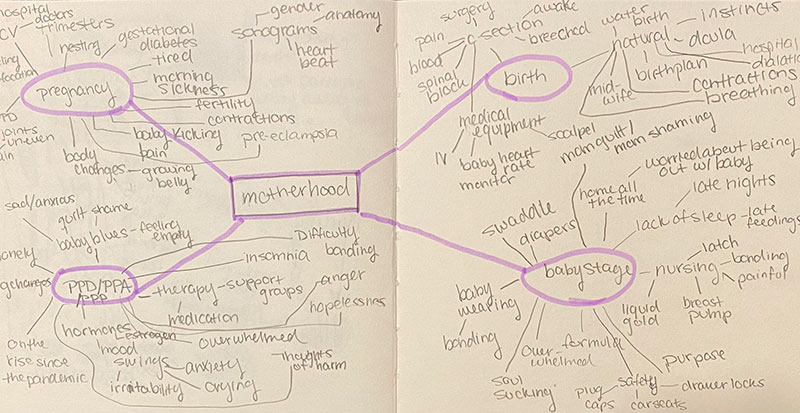 hospital
doctors
trimesters
nesting
gestational
diabetes
tired
morning
sickness
fertility
contractions
pre-eclampsia
baby kicking
pain
body
changes - growing
belly
pregnancy
gender
anatomy
sonograms
heart
beat
motherhood
sad/anxious
guilt shame
baby blues - feeling
empty
PPD/PPA
/PPP
Difficulty
bonding
insomnia
therapy - support
groups
anger
medication
hopelessness
hormones
estrogen
overwhelmed
mood
swings
anxiety
irritability
crying
thoughts
of harm
on the
rise since
the pandemic
surgery
awake
pain
c-section
breeched
blood
spinal
block
birth
medical
equipment
scalpel
IV
baby heart
rate
monitor
water
birth
instincts
natural
doula
hospital
birthplan
mid-
wife
contractions
breathing
mom guilt/
mom shaming
worried about being
out w/ baby
home all
the time
late nights
swaddle
diapers
lack of sleep - late
feedings
baby stage
nursing
latch
bonding
painful
baby
wearing
liquid
gold
breast
pump
bonding
over-
whelmed
formula
soul
sucking
purpose
safety
plug
caps
carseats
drawer locks